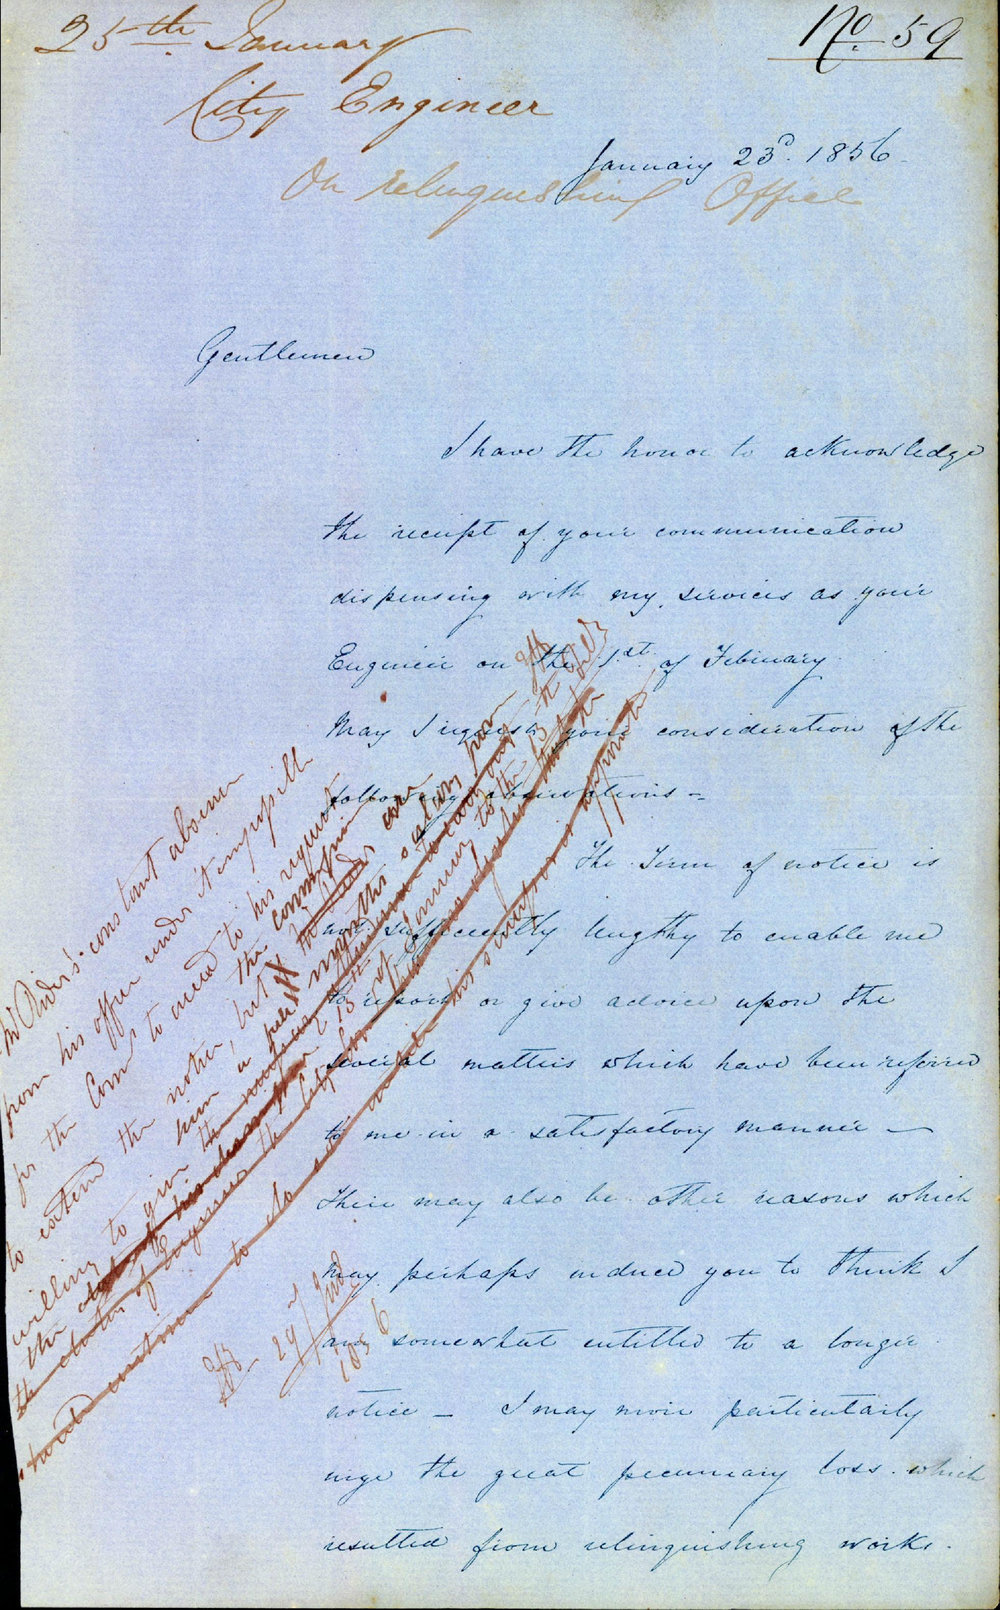 25th January
No. 59
City Engineer
January 23d. 1856.
On relinquishing Office
Gentlemen
I have the honor to acknowledge
the receipt of your communication
dispensing with my services as your
Engineer on the 1st of February.
May I request your consideration of the
following observations -
The Term of notice is
not sufficiently lengthy to enable me
to report or give advice upon the
several matters which have been referred
to me in a satisfactory manner -
There may also be other reasons which
may perhaps induce you to think I
am somewhat entitled to a longer
notice - I may more particularly
urge the great pecuniary loss which
resulted from relinquishing works.
Mr Rider's constant absence
from his office renders it impossible
for the Comrs to accede to his request
to extend the notice, but the commissioners are
willing to give him a month's salary from
the
the duties of Engineer
29 Jany
1856